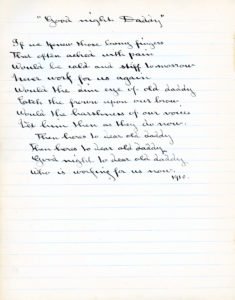 "Good night Daddy"
If we knew those loving fingers
That often ached with pain
Would be cold and stiff tomorrow
Never work for us again
Would the dim eye of old daddy
Catch the frown upon our brow
Would the harshness of our voices
Let him then as they do now.
Then heres to dear old daddy
Then heres to dear old daddy
Good night to dear old daddy
Who is working for us now.
1910.